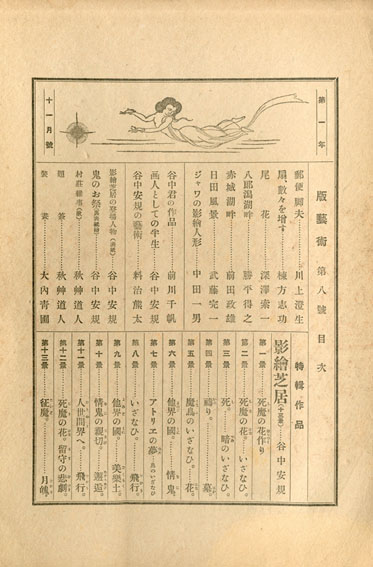 第一年
十一月號
版藝術 第八號 目次
郵便脚夫……川上澄生
扇、數々を增す……棟方志功
尾花……深澤索一
八郎潟湖畔……勝平得之
赤城湖畔……前田政雄
日田風景……武藤完一
ジャワの影繪人形……中田一男
谷中君の作品……前川千帆
画人としての半生……谷中安規
谷中安規の藝術……料治熊太
影繪芝居の登場人物……谷中安規
鬼のお祭……谷中安規
村莊雜事……秋艸道人
題簽……秋艸道人
裝案……大內青圃
特輯作品
影繪芝居(十三景)……谷中安規
第一景……死魔の花作り
第二景……死魔の花。いざなひ。
第三景……死。暗のいざなひ。
第四景……禱り。墓。
第五景……魔鳥のいざなひ。花。
第六景……他界の國。情鬼。
第七景……アトリエの夢
第八景……いざなひ。飛行。
第九景……他界の國。美樂土。
第十景……情鬼の親切。邂逅。
第十一景……人世間界へ。飛行。
第十二景……死魔の花。留守の悲劇。
第十三景……征魔。月魄。